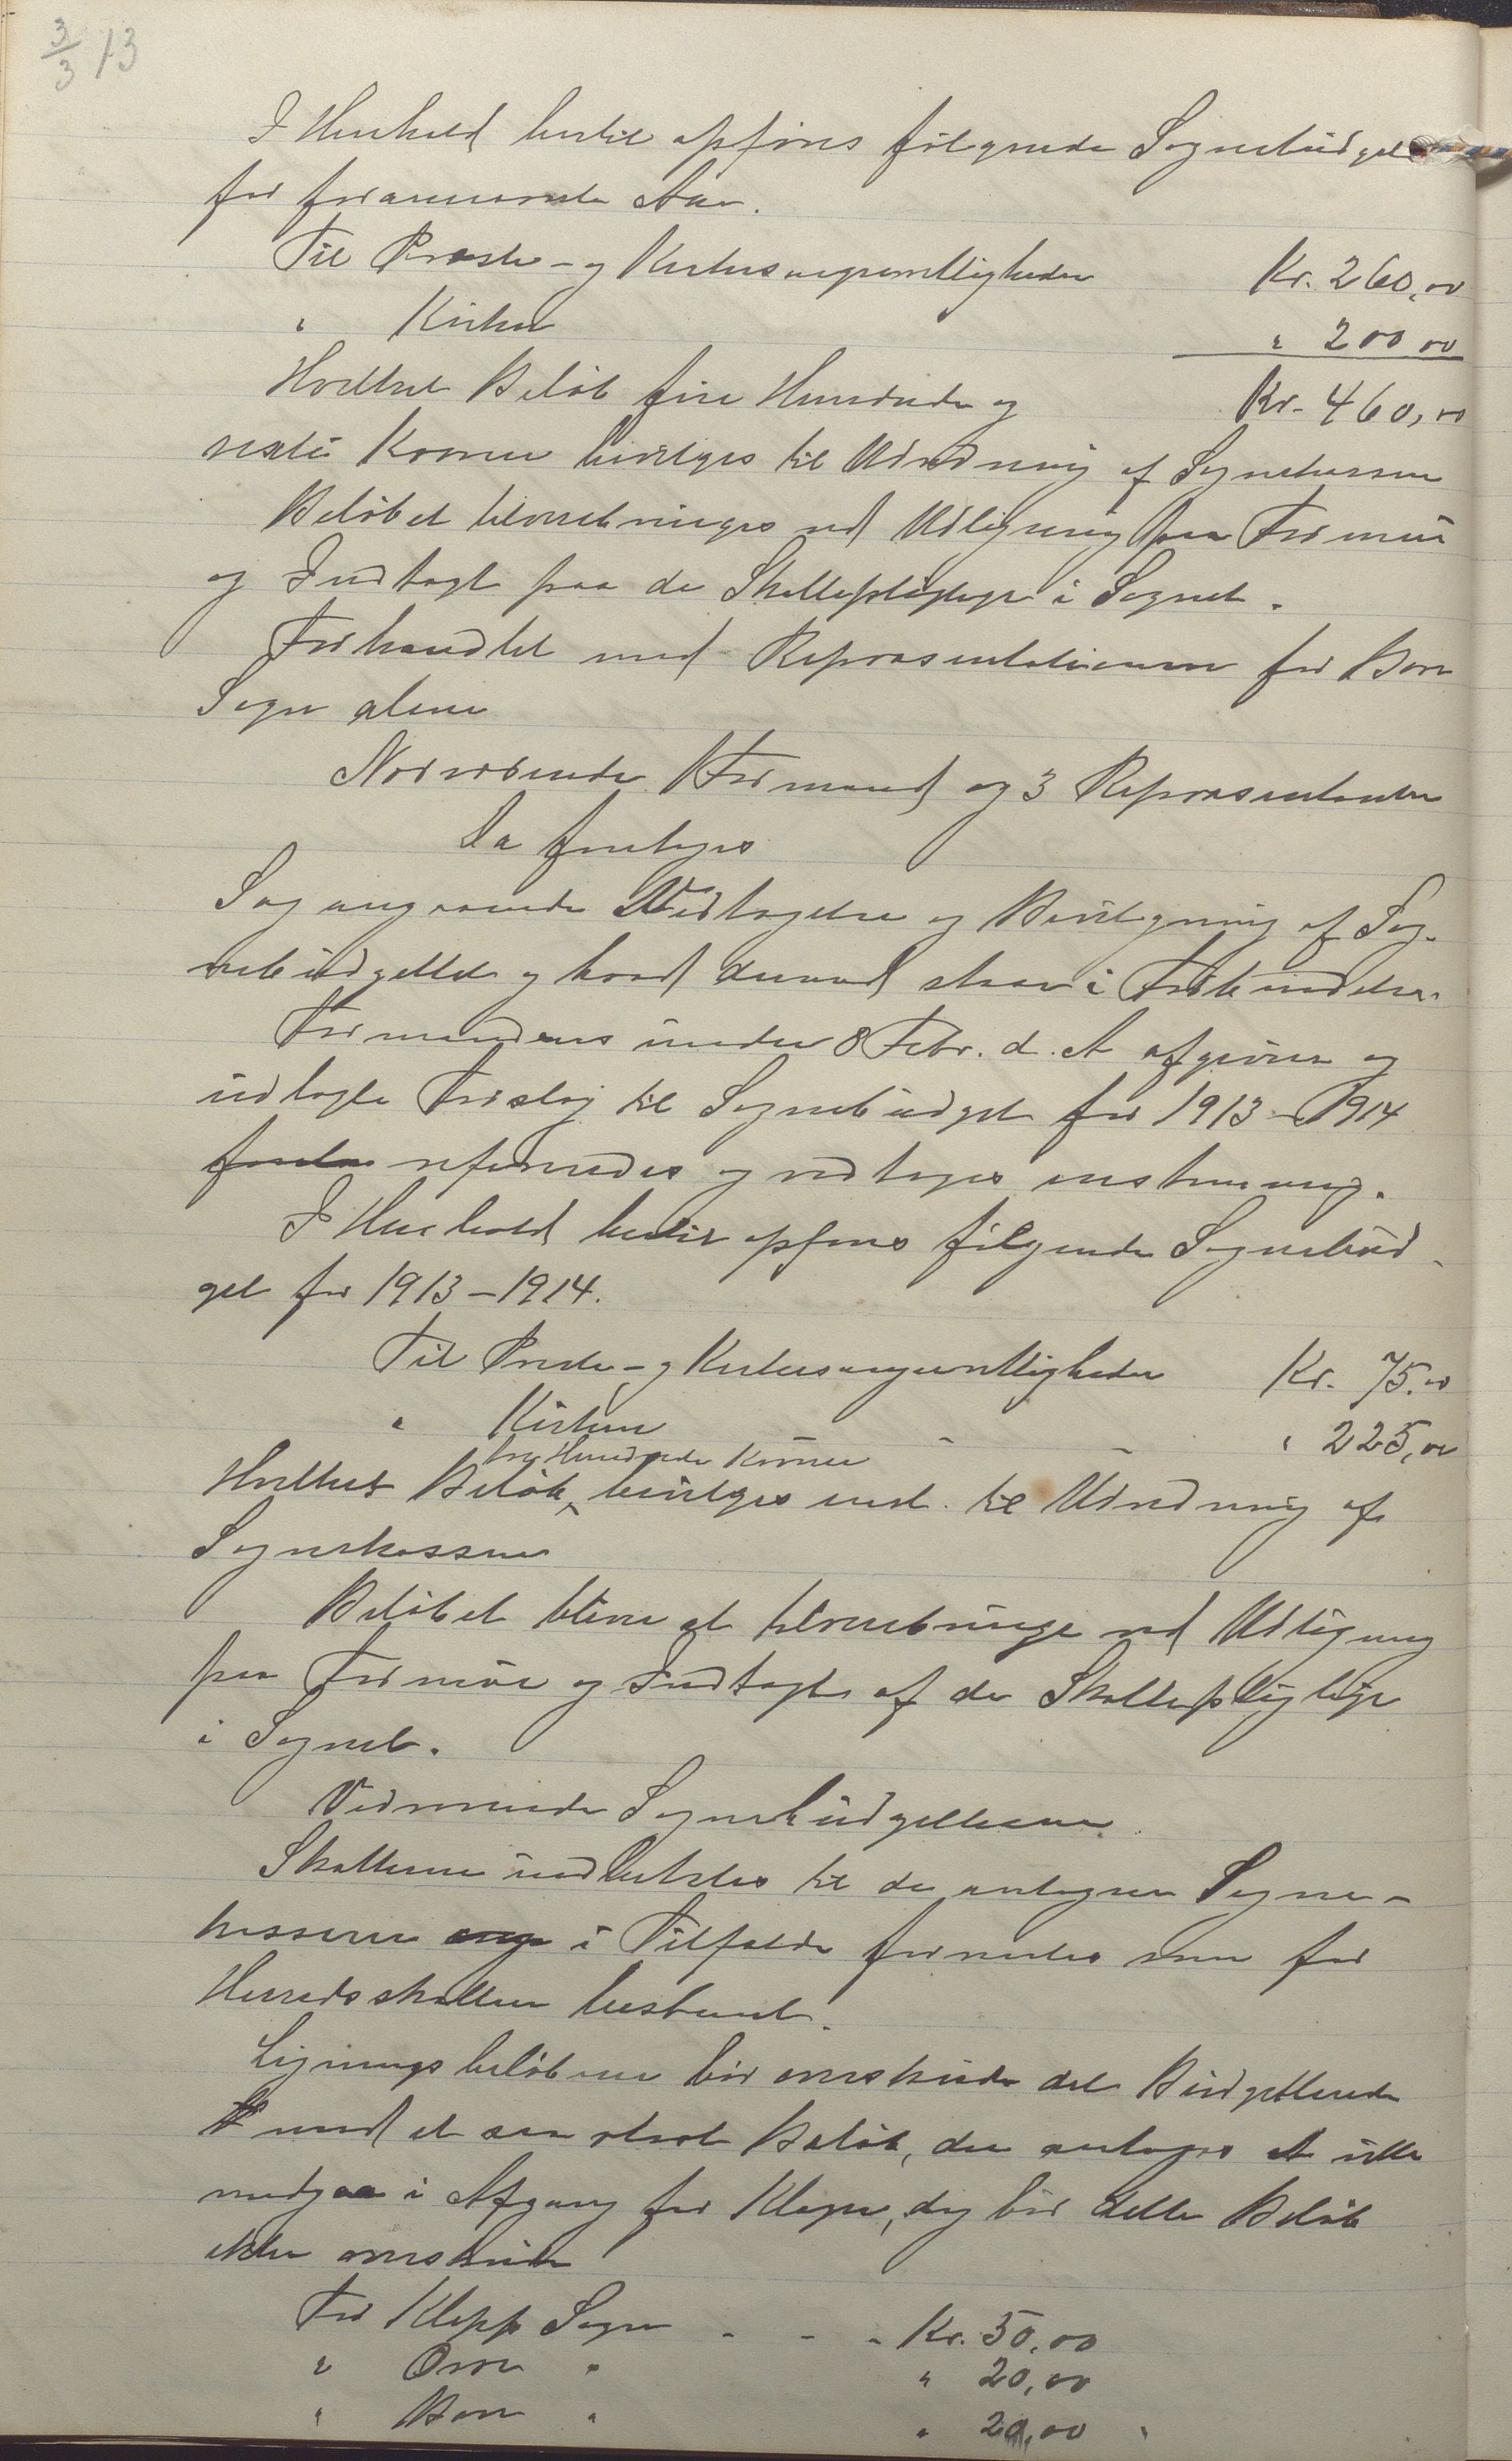 3/3 13
I Henhold hertil opføres følgende Sognebudget
for foranævnte Aar.
Til Præste- og Kirkesangeranliggender Kr. 260,00
" Kirken " 200 00
Hvilket Beløb fire Hundrede og Kr. 460,00
sexti Kroner bevilges til Udredning af Sognekassen
Beløbet tilveiebringes ved Udligning paa Formue
og Indtægt paa de Skattepligtige i Sognet.
Forhandlet med Repræsentationen for Bore
Sogn alene
Nærværende Formand og 3 Repræsentanter
Da foretoges
Sag angaaende Vedtagelse og Bevilgning af Sog-
nebudgettet og hvad dermed staar i Forbindelse.
Formandens under 8 Febr. d. A afgivne og
udlagte Forslag til Sognebudget for 1913-1914
refereredes og vedtoges enstemmig.
I Henhold hertil opføres følgende Sognebud-
get for 1913-1914.
Til Præste- og Kirkesangeranliggender Kr. 75.00
" Kirken " 225,00
tre Hundrede Kroner
Hvilket Beløb bevilges enst. til Udredning af
Sognekassen
Beløbet bliver at tilveiebringe ved Udligning
paa Formue og Indtægt af de Skattepligtige
i Sognet.
Vedrørende Sognebudgetterne.
Skatterne indbetales til de antagne Sogne-
kasserer i Tilfælde fornødes som for
Herredsskatten bestemt.
Ligningsbeløbene bør overskride det Budgetterede
med et saa stort Beløb, der antages at ville
medgaa i Afgang for Klager, dog bør dette Beløb
ikke overskride
For Klepp Sogn - - - Kr. 50,00
" Orre " " 20,00
" Bore " " 20,00